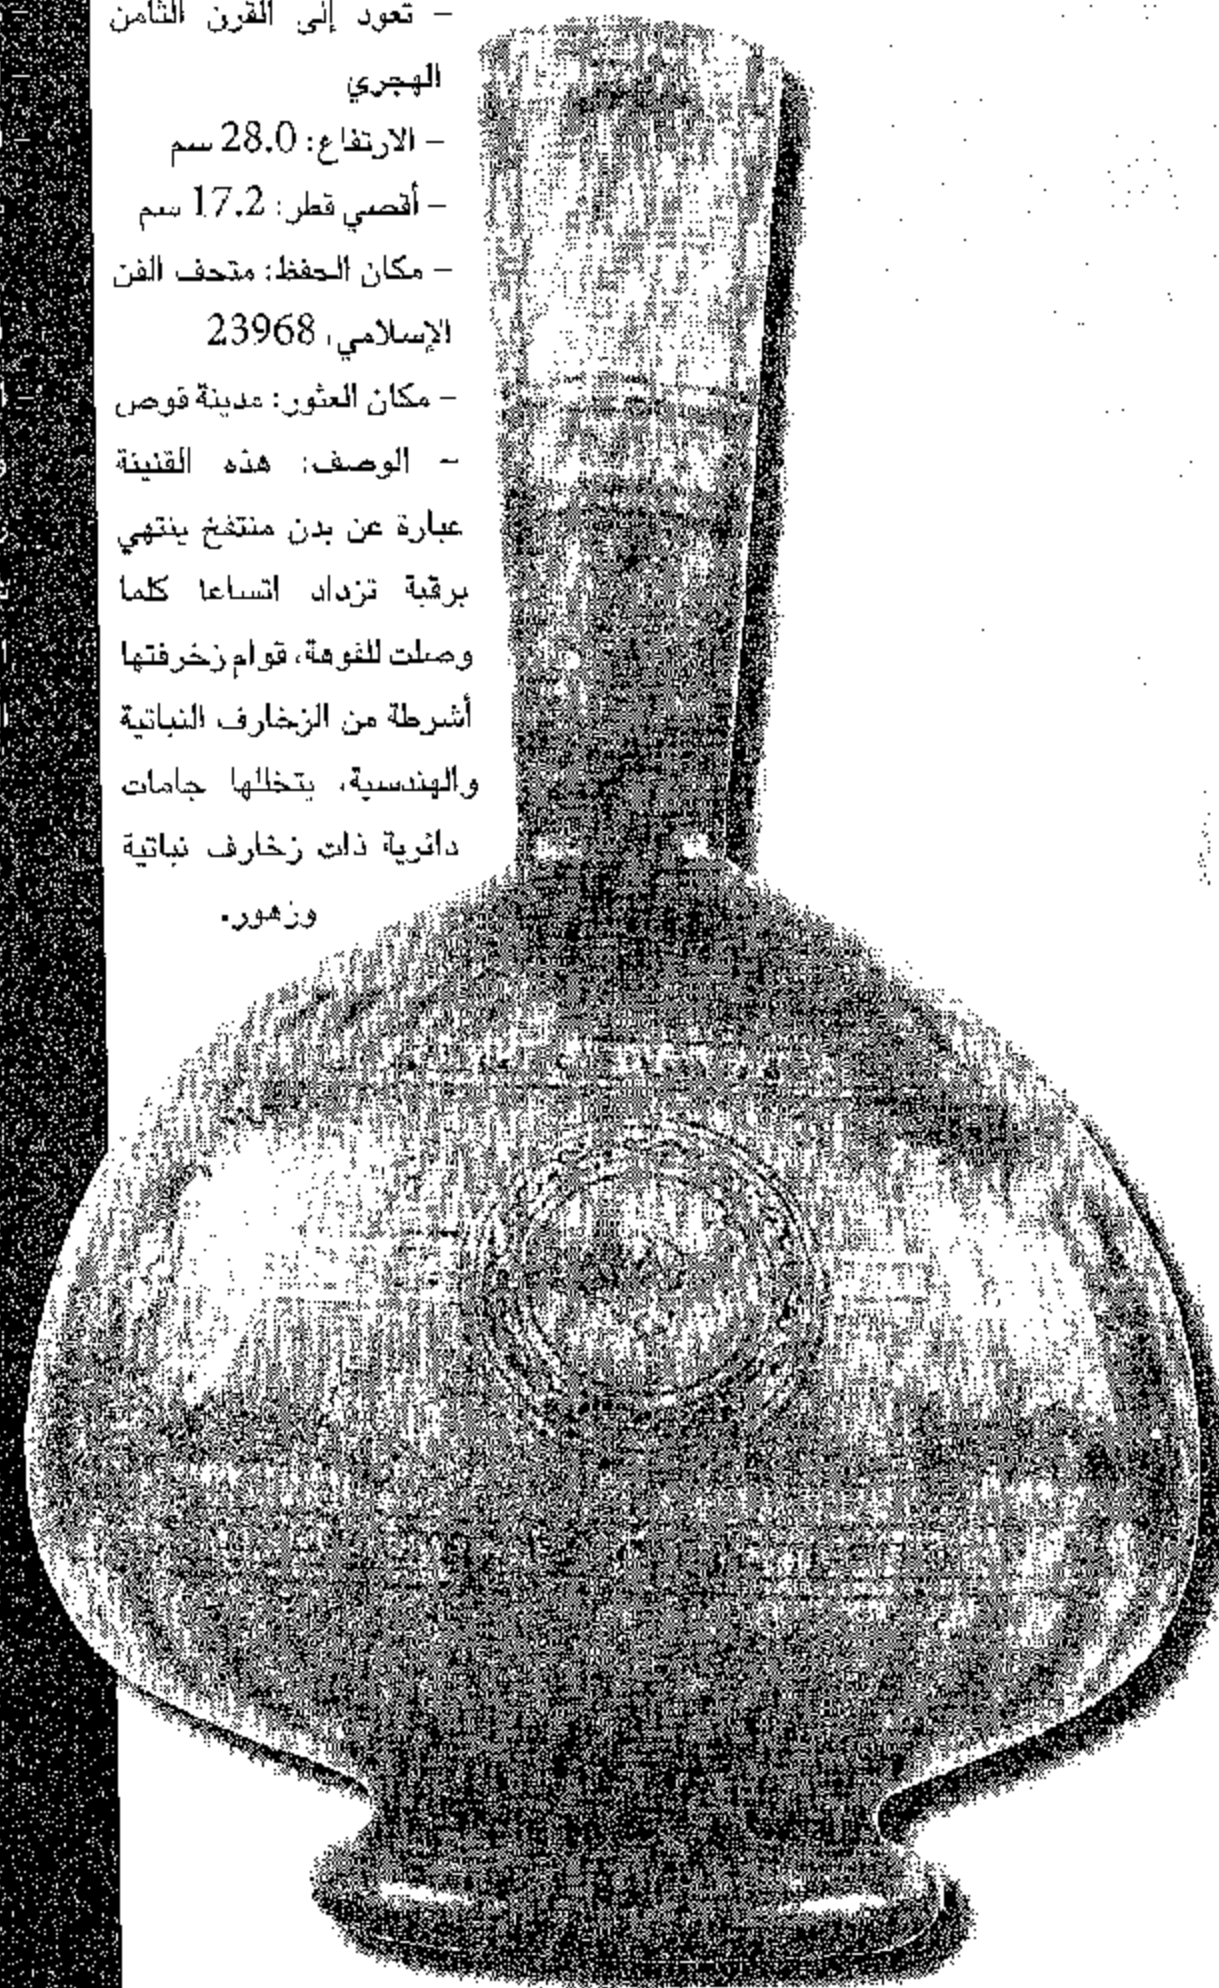 – تعود إلى القرن الثامن
الهجري
– الارتفاع: 28.0 سم
– أقصي قطر: 17.2 سم
– مكان الحفظ: متحف الفن
الإسلامي، 23968
– مكان العثور: مدينة قوص
– الوصف: هذه القنينة
عبارة عن بدن منتفخ ينتهي
برقبة تزداد اتساعا كلما
وصلت للفوهة، قوام زخرفتها
أشرطة من الزخارف النباتية
والهندسية، يتخللها جامات
دائرية ذات زخارف نباتية
وزهور.